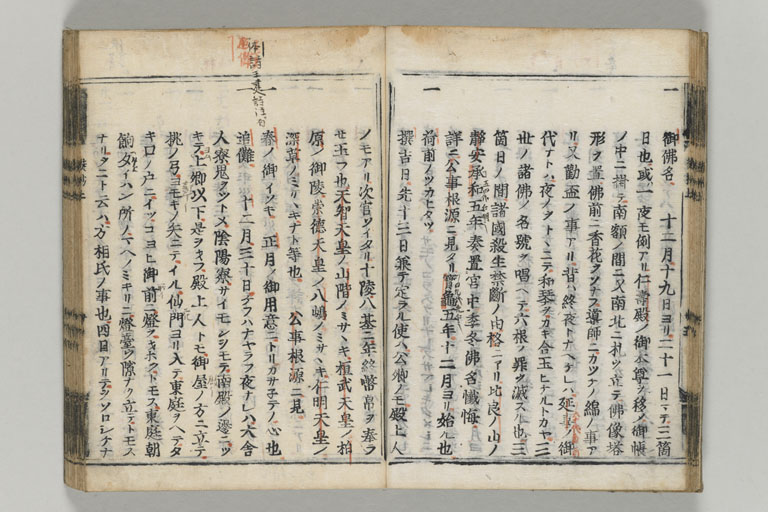 一
御佛名 十二月十九日ヨリ二十一日マテ三箇
日也或ハ一夜モ例アリ仁壽殿ノ御本尊ヲ移シ御帳
ノ中ニ掛テ南額ノ間ニ又南北ニ札ツ立テ佛像塔
形ヲ置佛前ニ香花クソナフ導師ニカツケノ綿ノ事ア
リ又勸盃ノ事アリ昔ハ終夜トナヘケレハ延喜ノ御
代マテハ夜ノヲトヽニテ和琴ヲカキ合玉ヒケルトカヤ三
世ノ諸佛ノ名號ヲ唱ヘテ六根ノ罪ヲ滅スト也三
箇日ノ間諸國殺生禁断ノ由格ニアリ比良ノ山ノ
靜安承和五年奏置宮中季冬佛名懺悔
詳ニ公事根源ニ見タリ寶龜五年十二月ヨリ始ル也
一
荷前ノツカヒタツ
撰吉日先十三日兼テ定ラル使ハ公卿ニモ殿上人
ノモアリ次官ソイタリ十陵八墓ニ年終幣帛ヲ奉ラ
セ玉フ也天智天皇ノ山階ノミサヽキ桓武天皇ノ柏
原ノ御陵崇德天皇ノ八嶋ノミサヽキ仁明天皇ノ
深草ノミサヽキナト等也 公事根源ニ見
春ノ御イソキ 正月ノ御用意ニトリカサ子テノ心也
一
追儺 十二月三十日ヲフハナヤラフ夜ナレハ大舍
人寮鬼ヲツトメ陰陽寮サイモンシモテ南殿ノ邊ニツ
キテ上卿以下是ヲキフ殿上人トモ御屋ノ方ニ立テ
桃ノ弓ヨモキノ矢ニテイル仙門ヨリ入テ東庭ヲヘテタ
キロノ戸ニイツコヨヒ御前ニ燈ヲキホクトモス東庭朝
餉女イハン所ノ下ヘノミキリニ燈臺ヲ隙ナク立テトモス
ナリタニト云ハ方相氏ノ事也四目アリテヲソロシケナ